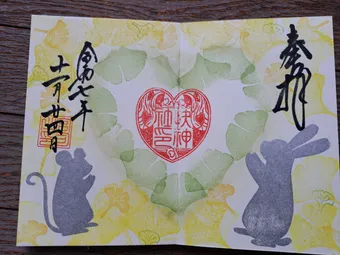 奉拝
神
社印
令和七年
十一月廿四日